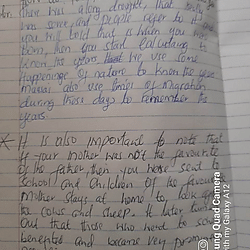 there was along drought, that only
two some, and people refer to it so
you will told that is when you was
born, then you start calculating to
know its years that we use some
Happenings of nature to know the age
Masai also use times of migration
during those days to remember the
years
* It is also important to note that
if your mother was not the favourite
of the father then you were sent to
school and children of the favourite
mother stays at home to look after
the cows and sheep. It later turn
out that those who went to school
benefited and became very
Quad Camera
my Galaxy A12